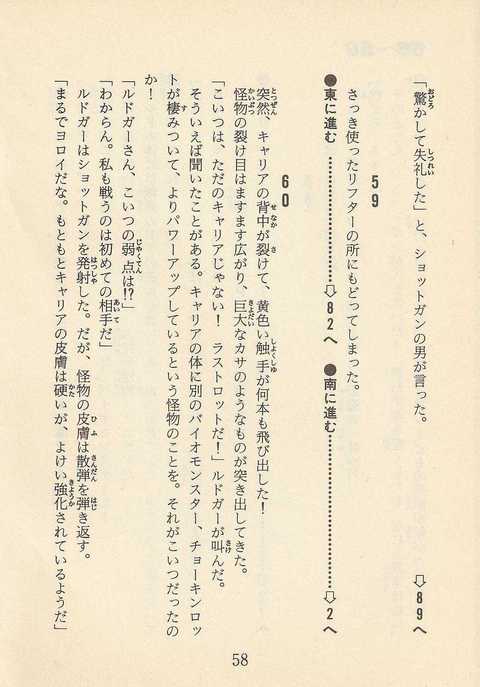 「驚かして失礼した」と、ショットガンの男が言った。
⇨89へ
59
さっき使ったリフターの所にもどってしまった。
●東に進む…………………⇨82へ ●南に進む…………………⇨2へ
60
突然、キャリアの背中が裂けて、黄色い触手が何本も飛び出した！
怪物の裂け目はますます広がり、巨大なカサのようなものが突き出してきた。
「こいつは、ただのキャリアじゃない！　ラストロットだ！」ルドガーが叫んだ。
そういえば聞いたことがある。キャリアの体に別のバイオモンスター、チョーキンロッ
トが棲みついて、よりパワーアップしているという怪物のことを。それがこいつだったの
か！
「ルドガーさん、こいつの弱点は!?」
「わからん。私も戦うのは初めての相手だ」
ルドガーはショットガンを発射した。だが、怪物の皮膚は散弾を弾き返す。
「まるでヨロイだな。もともとキャリアの皮膚は硬いが、よけい強化されているようだ」
58